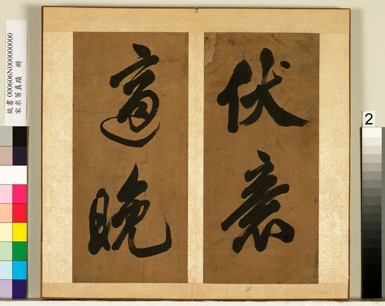 伏
適晚
故書 000606N000000000
宋米芾真蹟 冊
2